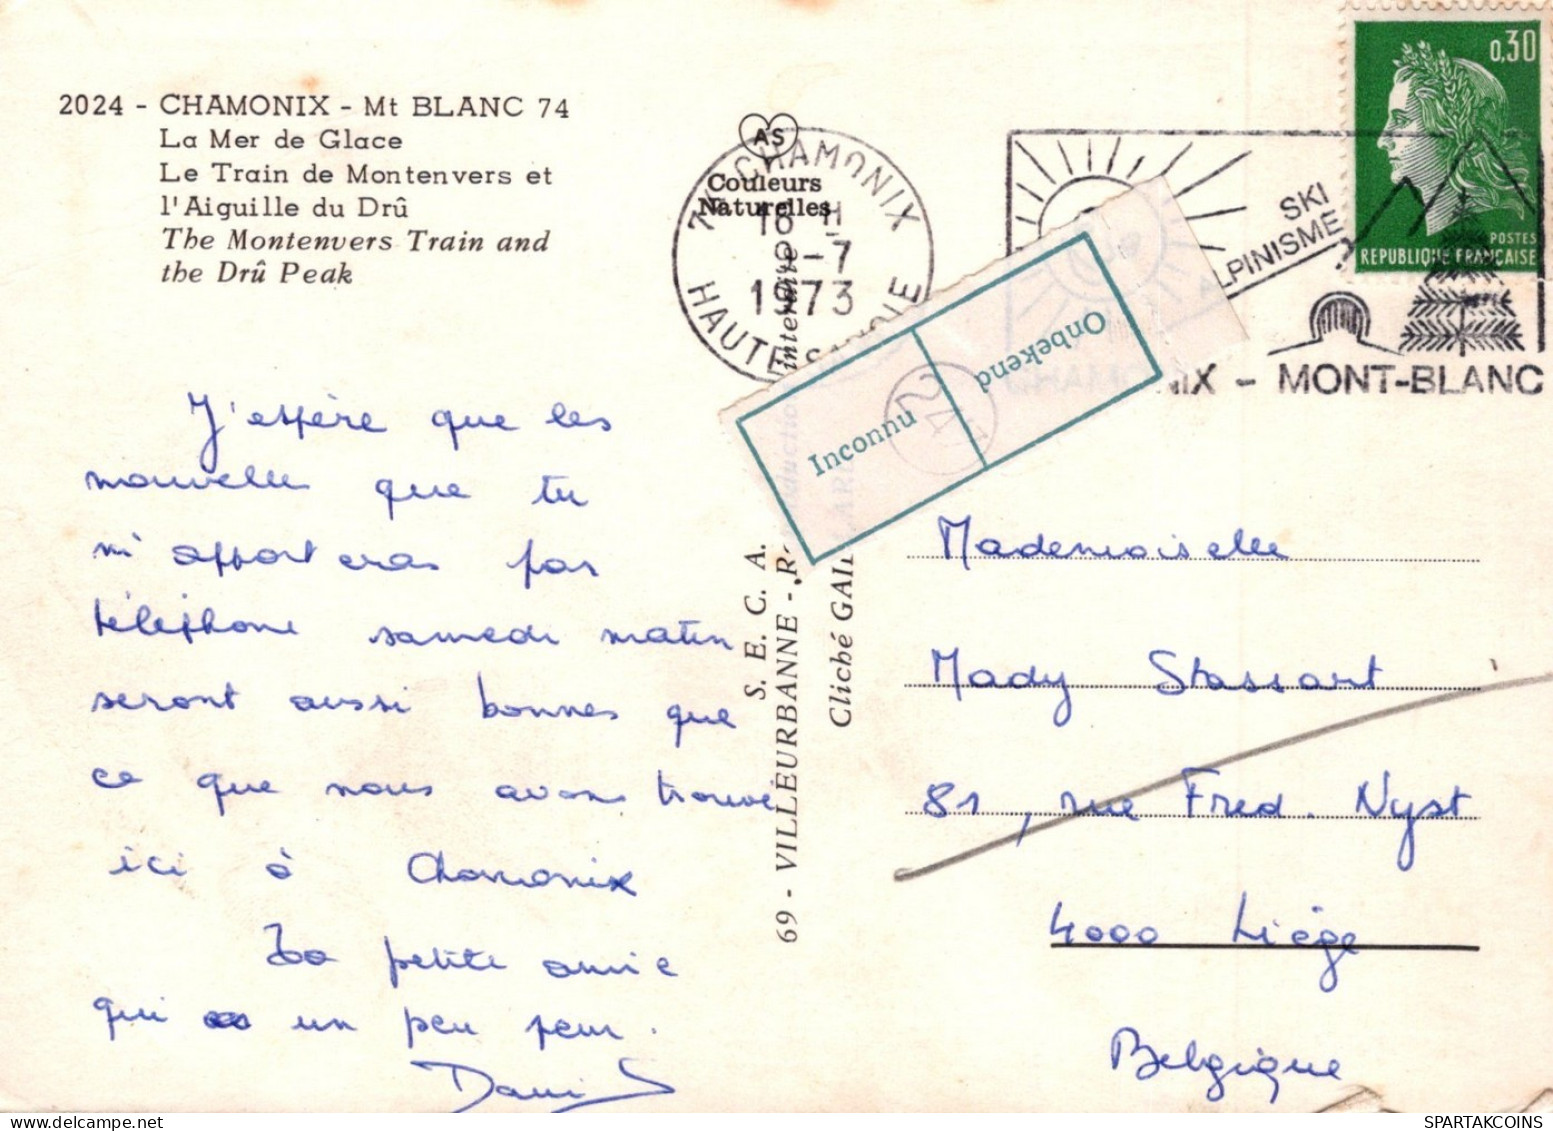 2024 - CHAMONIX - Mt BLANC 74
La Mer de Glace
Le Train de Montenvers et
l'Aiguille du Drû
The Montenvers Train and
the Drû Peak
J'espère que les
nouvelles que tu
m'apporteras par
téléphone samedi matin
seront aussi bonnes que
ce que nous avons trouvé
ici à Chamonix
Ta petite amie
qui a un peu peur.
AS
Couleurs
Naturelles
74 CHAMONIX
16 H
9-7
1973
HAUTE SAVOIE
S. E. C. A.
69 - VILLEURBANNE - Reproduction interdite
Cliché GAILLARD
Inconnu
Onbekend
SKI
ALPINISME
CHAMONIX - MONT-BLANC
0,30
POSTES
REPUBLIQUE FRANÇAISE
Mademoiselle
Mady Stassart
81, rue Fred. Nyst
4000 Liège
Belgique
SPARTAKCOINS